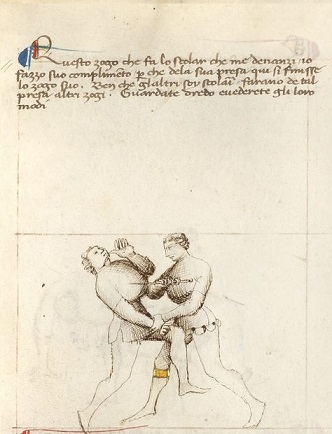 Questo zogo che fa lo scolar che me denanzi io
fazzo suo complimēto ꝑ che dela sua presa qui si finisse
lo zogo suo. Ben che gl'altri soy scolari farano de tal
presa altri zogi. Guardate dredo e vederete gli loro
modi